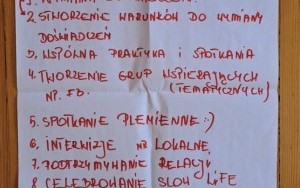 2. STWORZENIE WARUNKÓW DO WYMIANY
DOŚWIADCZEŃ
3. WSPÓLNA PRAKTYKA I SPOTKANIA
4. TWORZENIE GRUP WSPIERAJĄCYCH
NP. FB. (TEMATYCZNYCH)
5. SPOTKANIE PLEMIENNE :)
6. INTERWIZJE LOKALNE
7. PODTRZYMYWANIE RELACJI
8. CELEBROWANIE SLOW LIFE